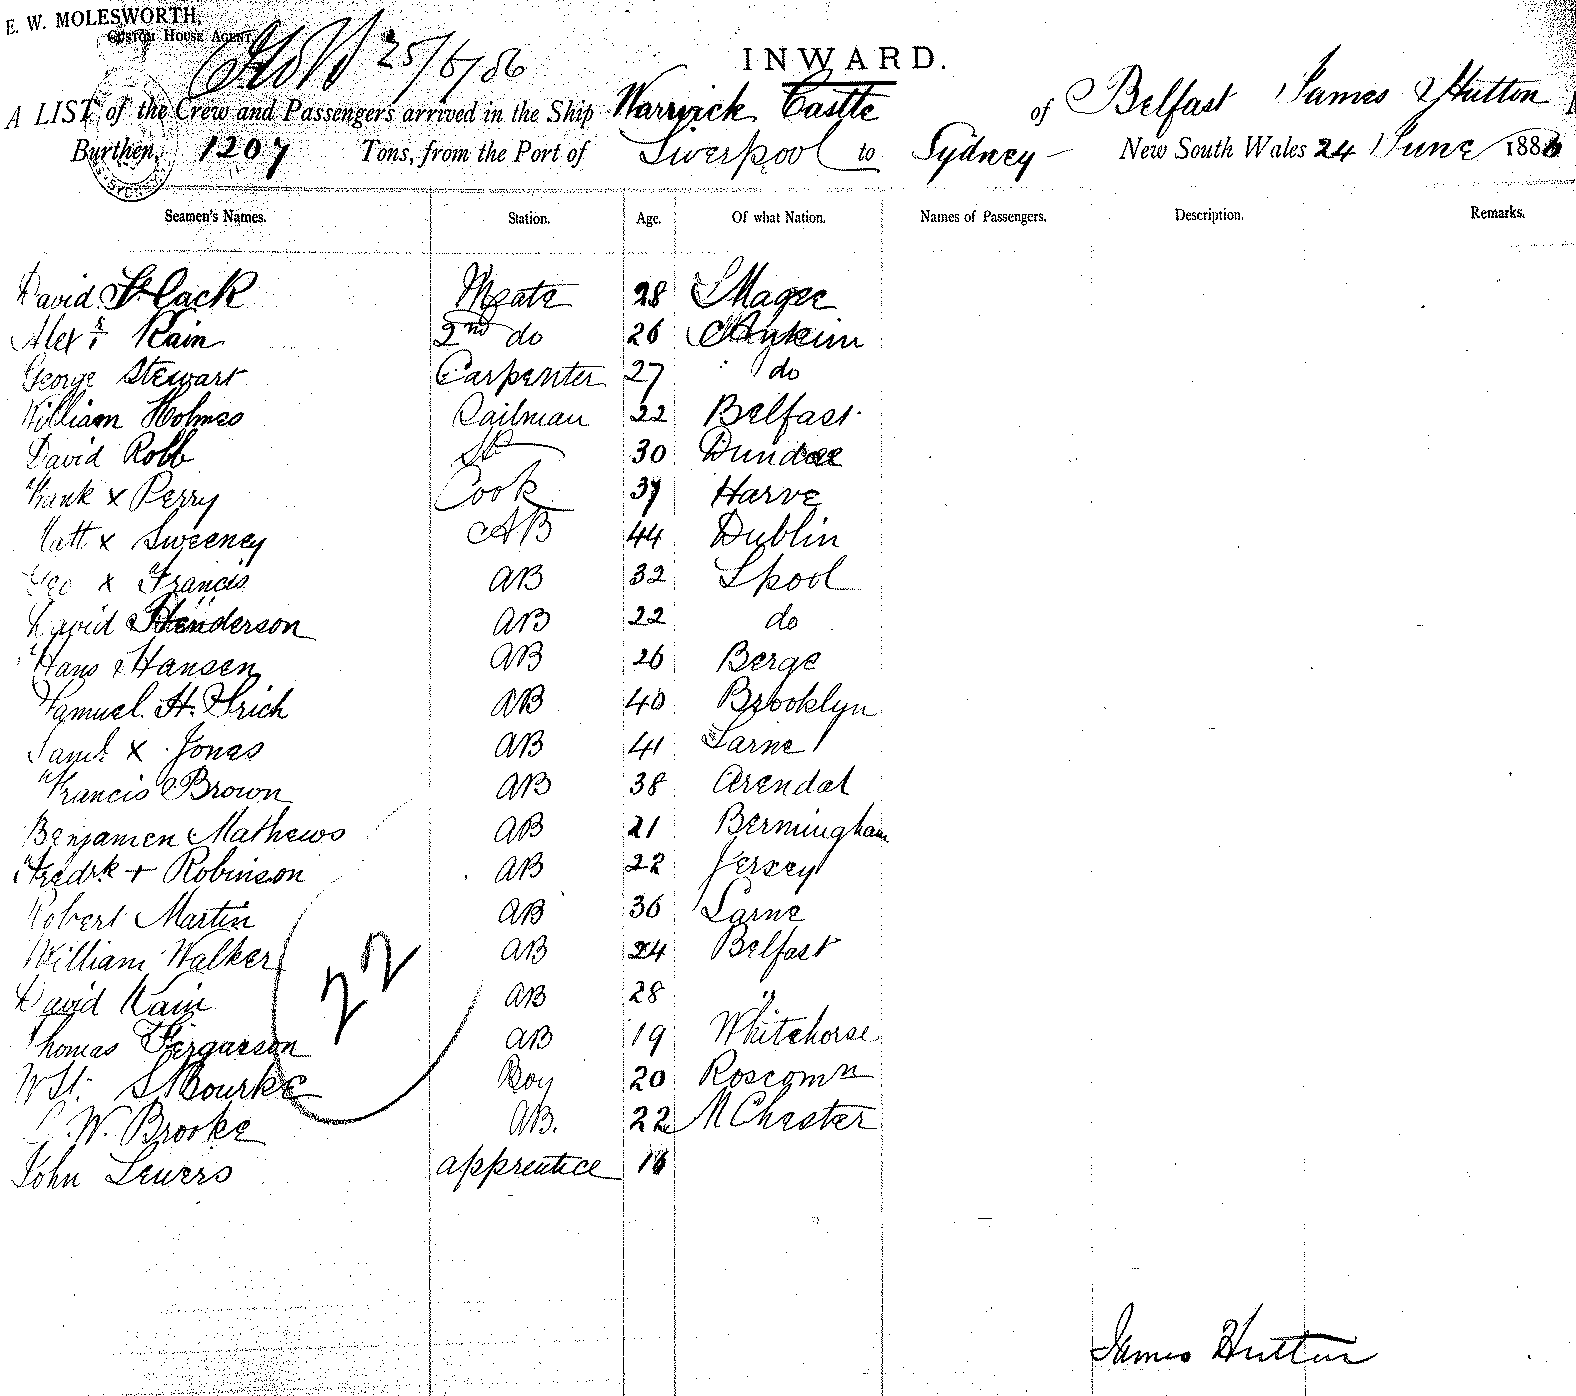 E. W. MOLESWORTH,
CUSTOM HOUSE AGENT,
25/6/86
INWARD.
A LIST of the Crew and Passengers arrived in the Ship Warwick Castle of Belfast James Hutton
Burthen, 1207 Tons, from the Port of Liverpool to Sydney New South Wales 24 June 1886
Seamen's Names. Station. Age. Of what Nation. Names of Passengers. Description. Remarks.
David Mate 28 I Magee
Alexr Kain 2nd do 26 Antrim
George Stewart Carpenter 27 do
William Holmes Sailman 22 Belfast
David Robb 30 Dundee
Frank x Perry Cook 37 Harve
Matt x Sweeney AB 44 Dublin
Geo x Francis AB 32 Lpool
David Henderson AB 22 do
Hans Hansen AB 26 Berge
Samuel. H. AB 40 Brooklyn
Saml. x Jones AB 41 Larne
Francis Brown AB 38 Arendal
Benjamen Mathews AB 21 Bermingham
Fredrk + Robinson AB 22 Jersey
Robert Martin AB 36 Larne
William Walker AB 24 Belfast
22
David Kain AB 28 "
Thomas Fergarson AB 19 Whitehorse
Bourke Boy 20 Roscomn
W. Brooke AB. 22 MChester
John Lewers apprentice 16
James Hutton